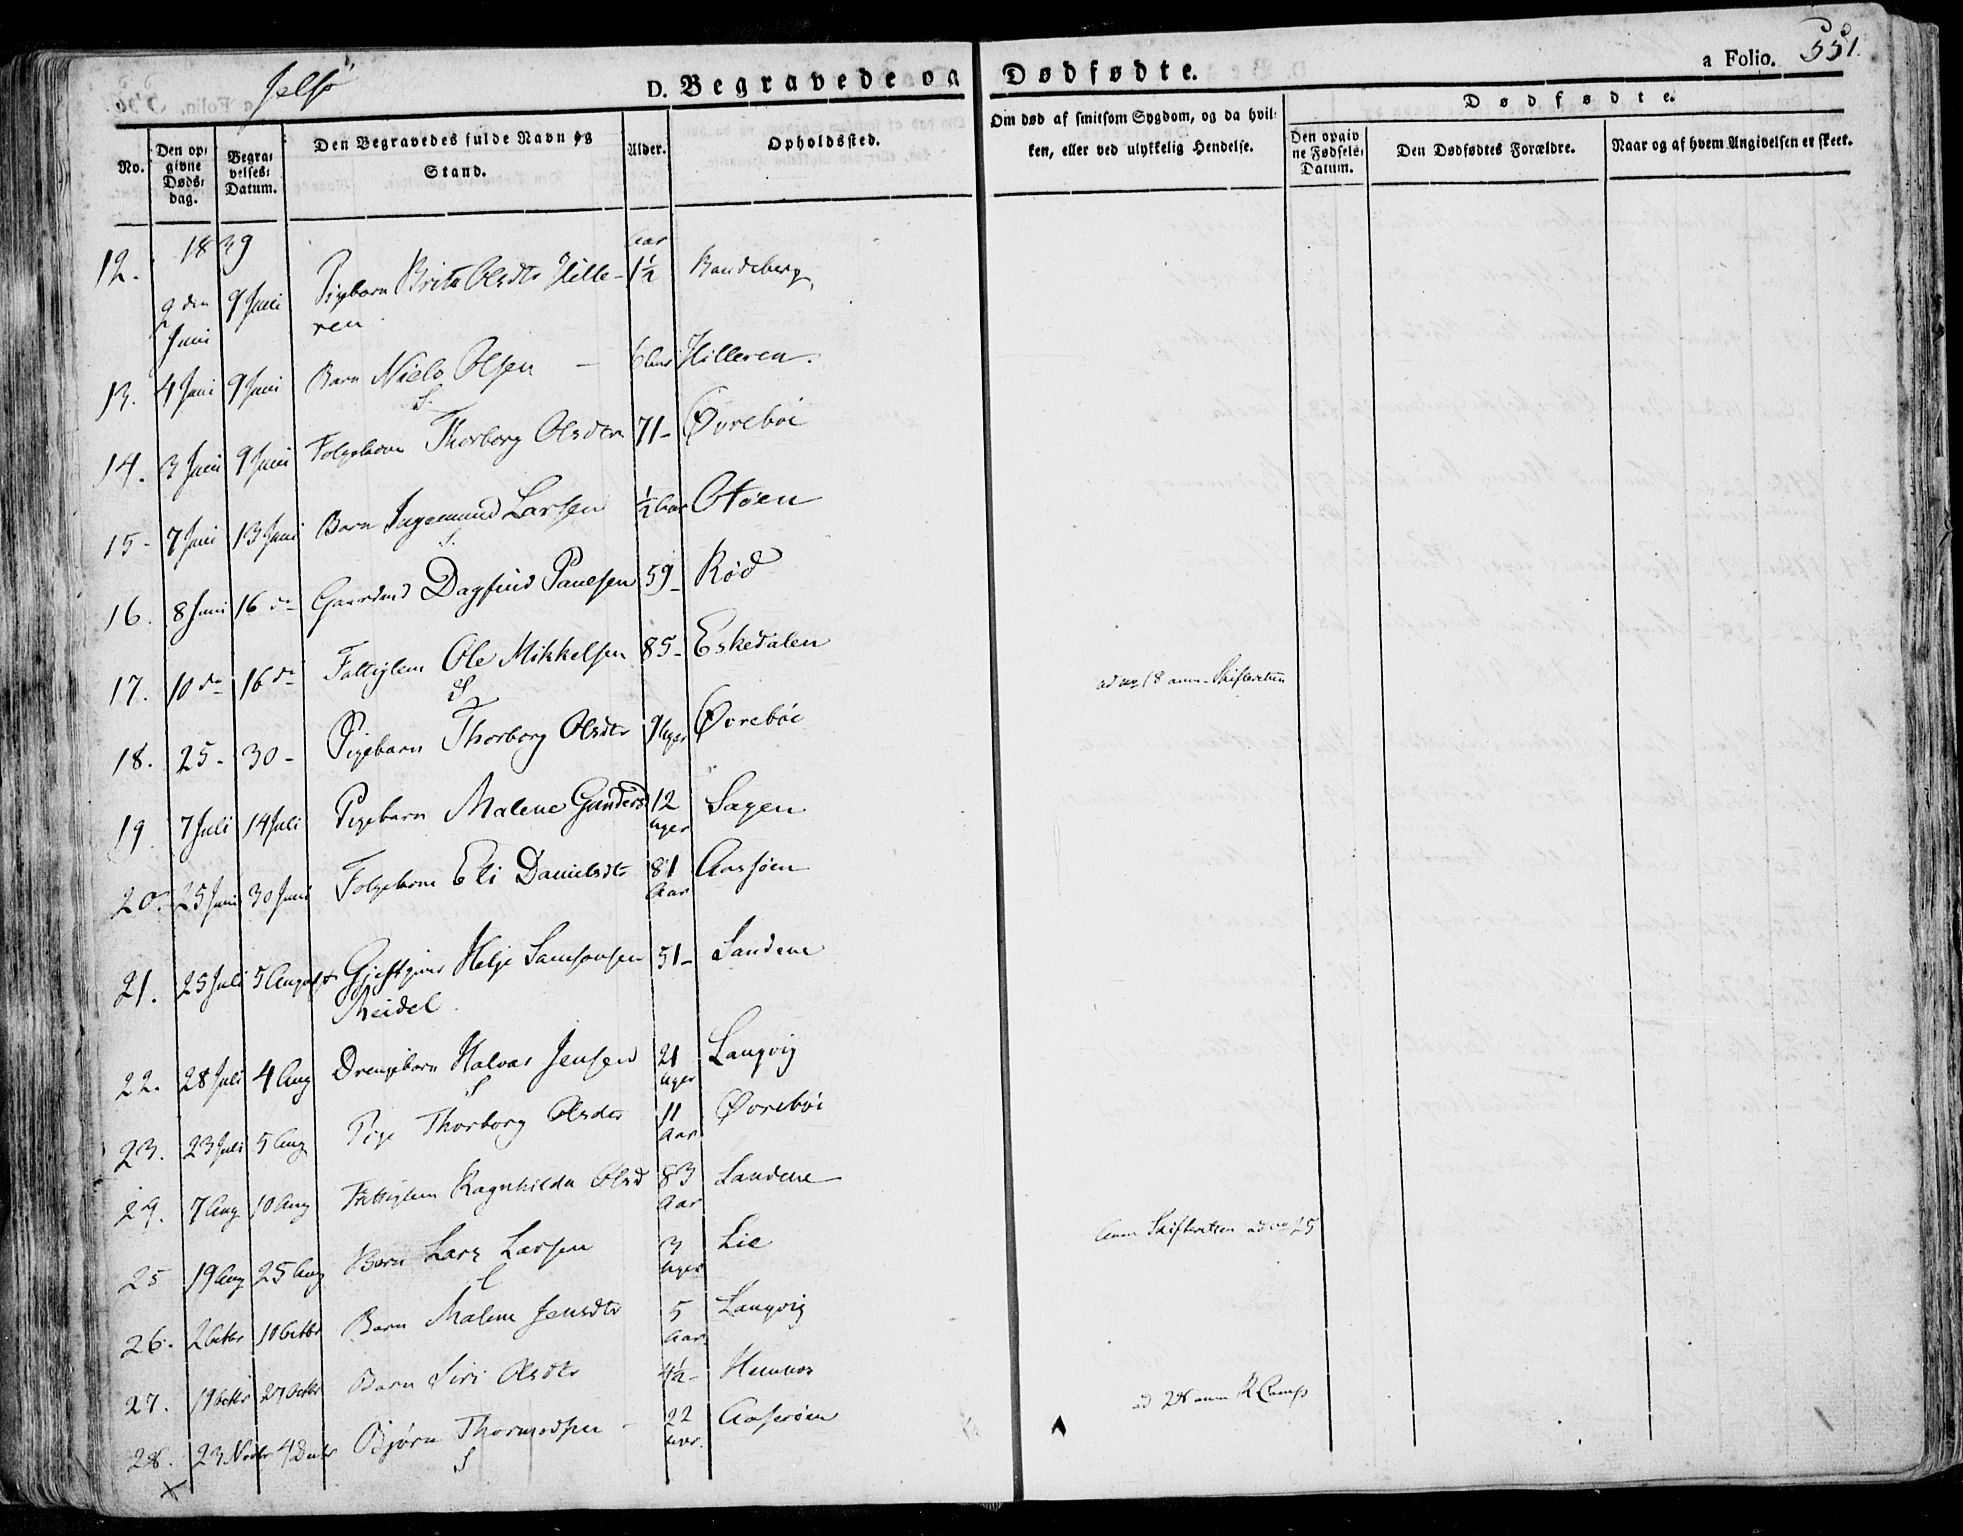 Jelsø
D. Begravede og Dødfødte.
a Folio. 551.
No.
Den opgivne Døds-dag.
Begravelses-Datum.
Den Begravedes fulde Navn og Stand.
Alder.
Opholdssted.
Om død af smitsom Sygdom, og da hvilken, eller ved ulykkelig Hendelse.
Dødfødte.
Den opgivne Fødsels-Datum.
Den Dødfødtes Forældre.
Naar og af hvem Angivelsen er skeet.
1839
12. 9 den Juni 9 Juni Pigebarn Brita Olsdtr Hille-ren Aar 1½ Randeberg
13. 4 Juni 9 Juni Barn Niels Olsen - 6 Hilleren.
14. 3 Juni 9 Juni Folgekone Thorborg Olsdtr 71- Øvrebøe
15- 7 Juni 13 Juni Barn Ingemund Larsen ½ Aar Otøen
16. 8 Juni 16 do Gaardmd Dagfind Paulsen 59- Rød
17. 10 do 16 do Fattiglem Ole Mikkelsen 85- Eskedalen
ad no 18 anm. Skifteretten
18. 25- 30- Pigebarn Thorborg Olsdtr 9 Uger Øvrebøe
19 7 Juli 14 Juli Pigebarn Malene Gunders 12 Uger Sagen
20. 25 Juni 30 Juni Folgekone Eli Danielsdtr 81 Aar
21. 25 Juli 5 August Gjestgiver Helje Samsonsen Meidel 51- Sandene
22. 28 Juli 4 Aug Drengebarn Halvor Jensen 21 Uger Langvig
23. 23 Juli 5 Aug Pige Thorborg Olsdtr 11 Aar Øvrebøe
24. 7 Aug 10 Aug Fattiglem Ragnhilda Olsd 83 Aar Sandene
25 19 Aug 25 Aug Barn Lars Larsen 3 Uger Lie
Anm Skifteretten ad no 25
26. 2 Octbr 10 Octbr Barn Malene Jensdtr 5 Aar Langvig
27. 19 Octbr 27 Octbr Barn Siri Olsdtr 4½- Hemnes
28. 23 Novbr 4 Decbr Bjørn Thormodsen - 22
ad 28 anm